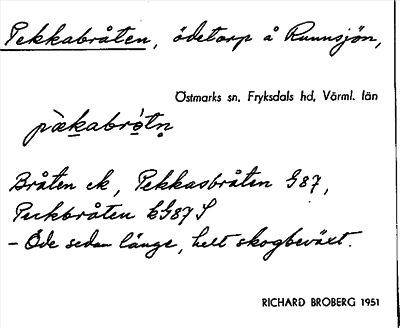 Pekkabråten, ödetorp å Runnsjön,
Östmarks sn, Fryksdals hd, Värml. län
pæ̀kabró̢tn̥
Bråten ek, Pekkasbråten G87,
Peckbråten EG87 S
– Öde sedan länge, helt skogbeväxt.
RICHARD BROBERG 1951